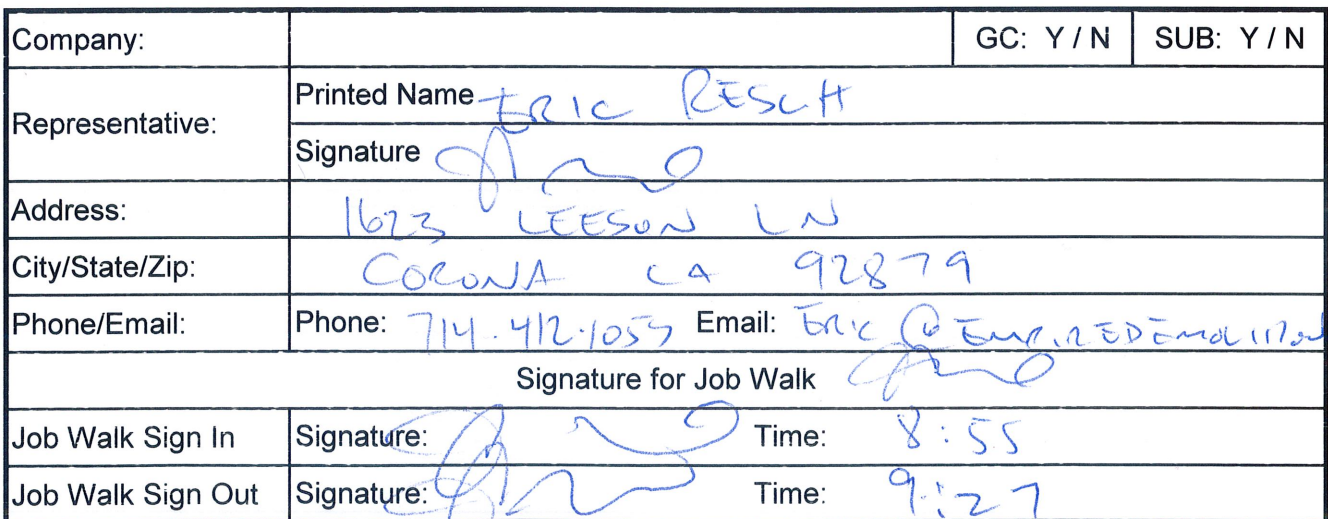 Company: GC: Y / N SUB: Y / N
Representative: Printed Name ERIC RESCH
Signature
Address: 1623 LEESON LN
City/State/Zip: CORONA CA 92879
Phone/Email: Phone: 714.412.1053 Email: ERIC @ EMPIREDEMOLITION
Signature for Job Walk
Job Walk Sign In Signature: Time: 8:55
Job Walk Sign Out Signature: Time: 9:27